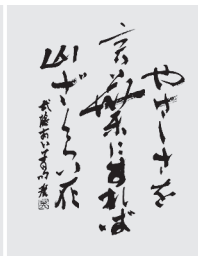 やさしさを
言葉にすれば
山ざくら花